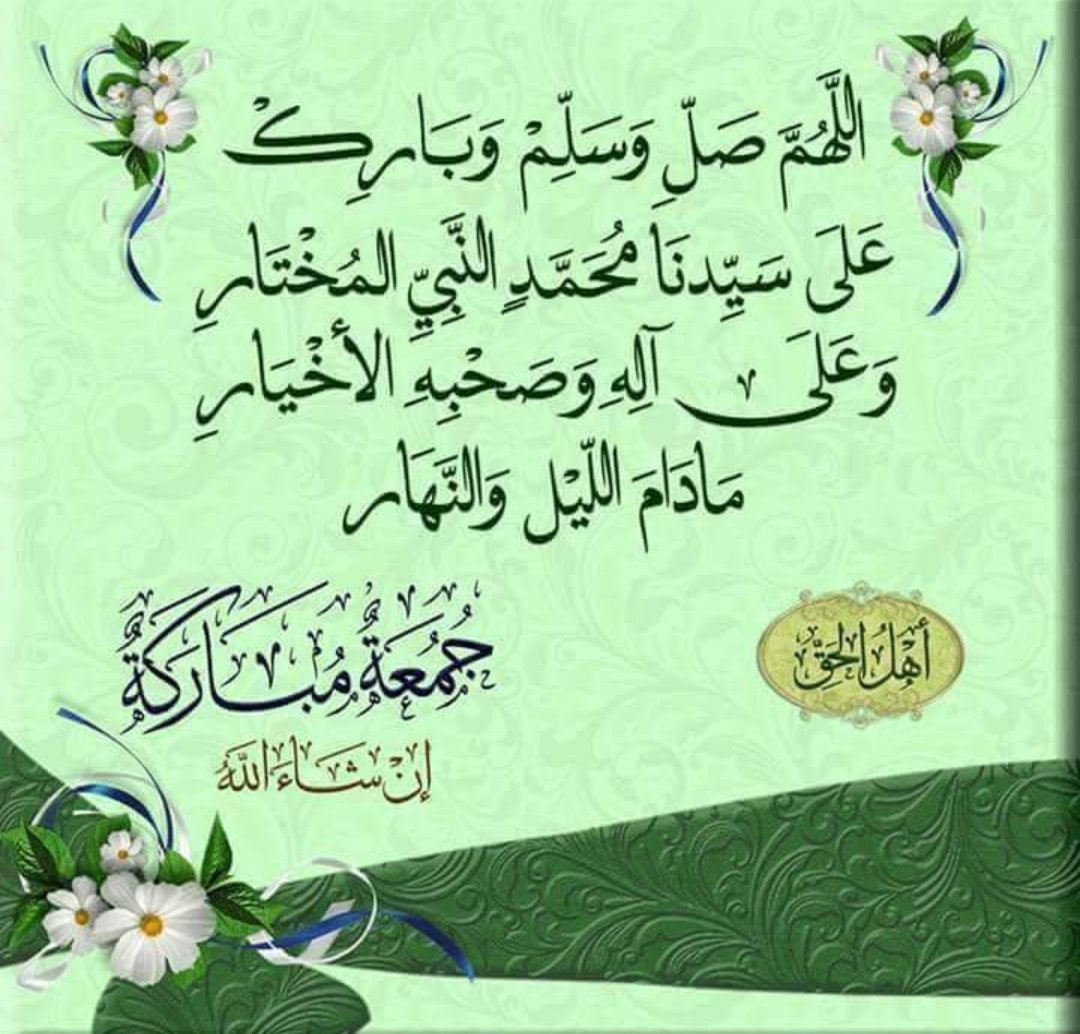 اللَّهُمَّ صَلِّ وَسَلِّمْ وَبَارِكْ
عَلَى سَيِّدِنَا مُحَمَّدٍ النَّبِيِّ المُخْتَارِ
وَعَلَى آلِهِ وَصَحْبِهِ الأَخْيَارِ
مَادَامَ اللَّيْل وَالنَّهَار
جُمُعَةٌ مُبَارَكَةٌ
أَهْلُ الحَقِّ
إِنْ شَاءَ اللَّهُ